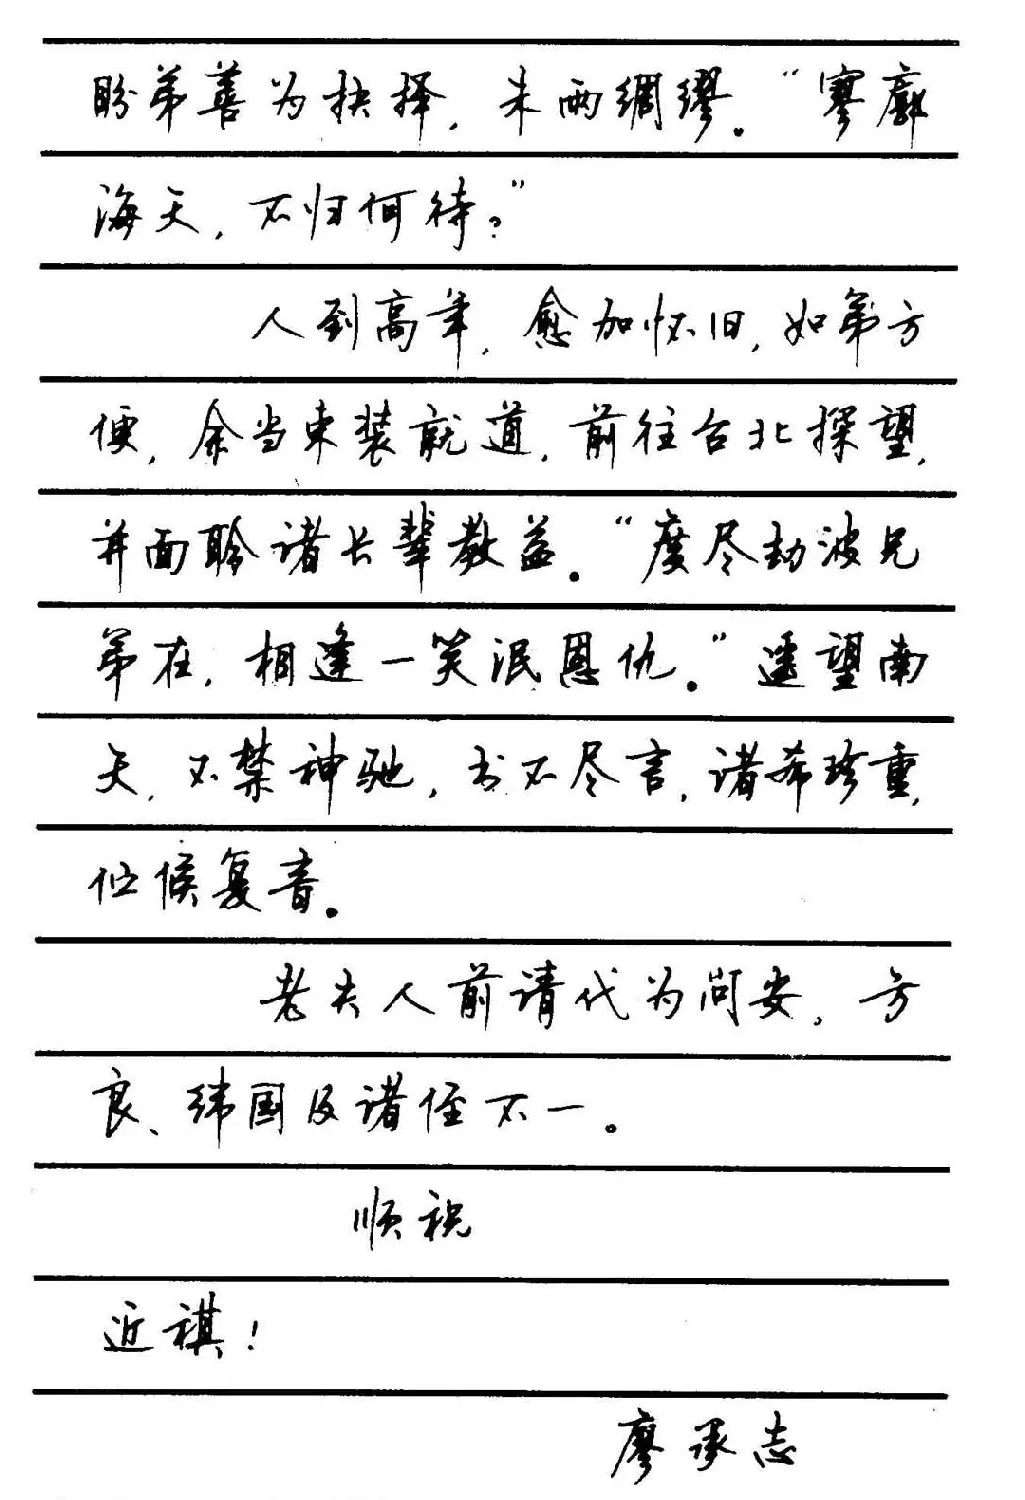 盼弟善为抉择，未雨绸缪。“寥廓
海天，不归何待？”
人到高年，愈加怀旧，如弟方
便，余当束装就道，前往台北探望，
并面聆诸长辈教益。“度尽劫波兄
弟在，相逢一笑泯恩仇。”遥望南
天，不禁神驰，书不尽言，诸希珍重，
伫候复音。
老夫人前请代为问安，方
良、纬国及诸侄不一。
顺祝
近祺！
廖承志